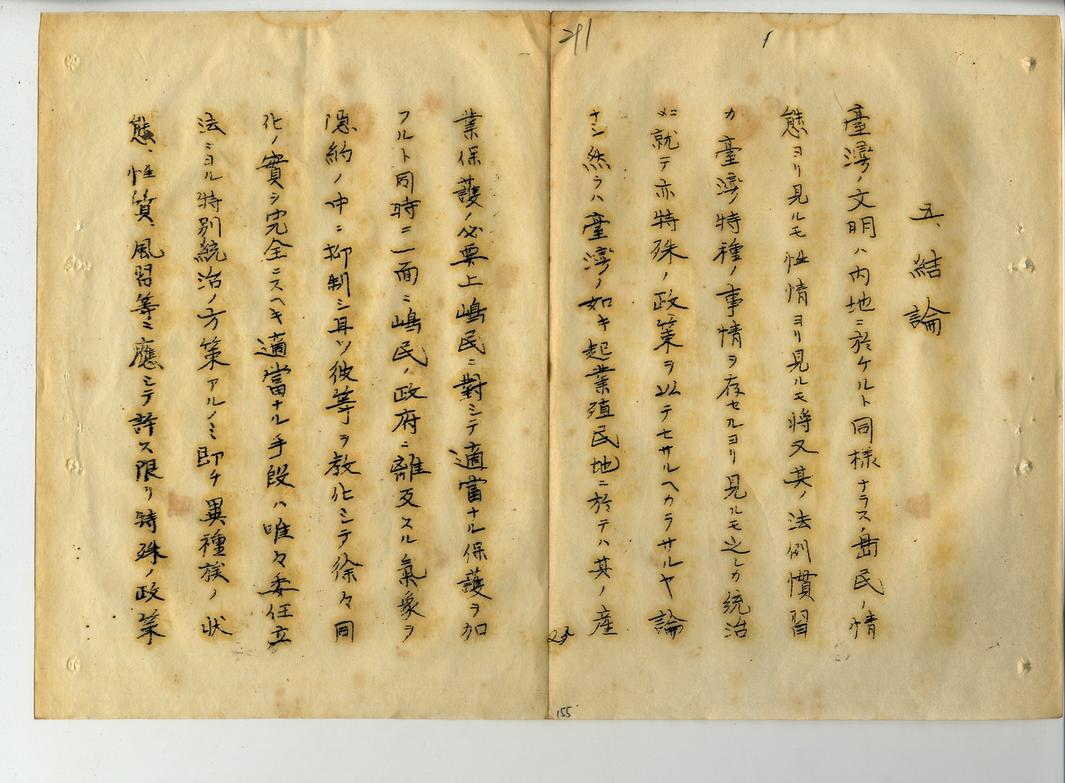 五、結論
臺灣ノ文明ハ內地ニ於ケルト同様ナラス島民ノ情
態ヨリ見ルモ性情ヨリ見ルモ将又其ノ法例慣習
カ臺灣特種ノ事情ヲ存セルヨリ見ルモ之レカ統治
ニ就テ亦特殊ノ政策ヲ以テセサルヘカラサルヤ論
ナシ然ラハ臺灣ノ如キ起業殖民地ニ於テハ其ノ産
業保護ノ必要上嶋民ニ對シテ適當ナル保護ヲ加
フルト同時ニ一面ニ嶋民ノ政府ニ離反スル氣象ヲ
隠約ノ中ニ抑制シ且ツ彼等ヲ教化シテ徐々同
化ノ實ヲ完全ニスヘキ適當ナル手段ハ唯々委任立
法ニヨル特別統治ノ方策アルノミ即チ異種族ノ状
態、性質、風習等ニ應シテ許ス限リ特殊ノ政策
291
155